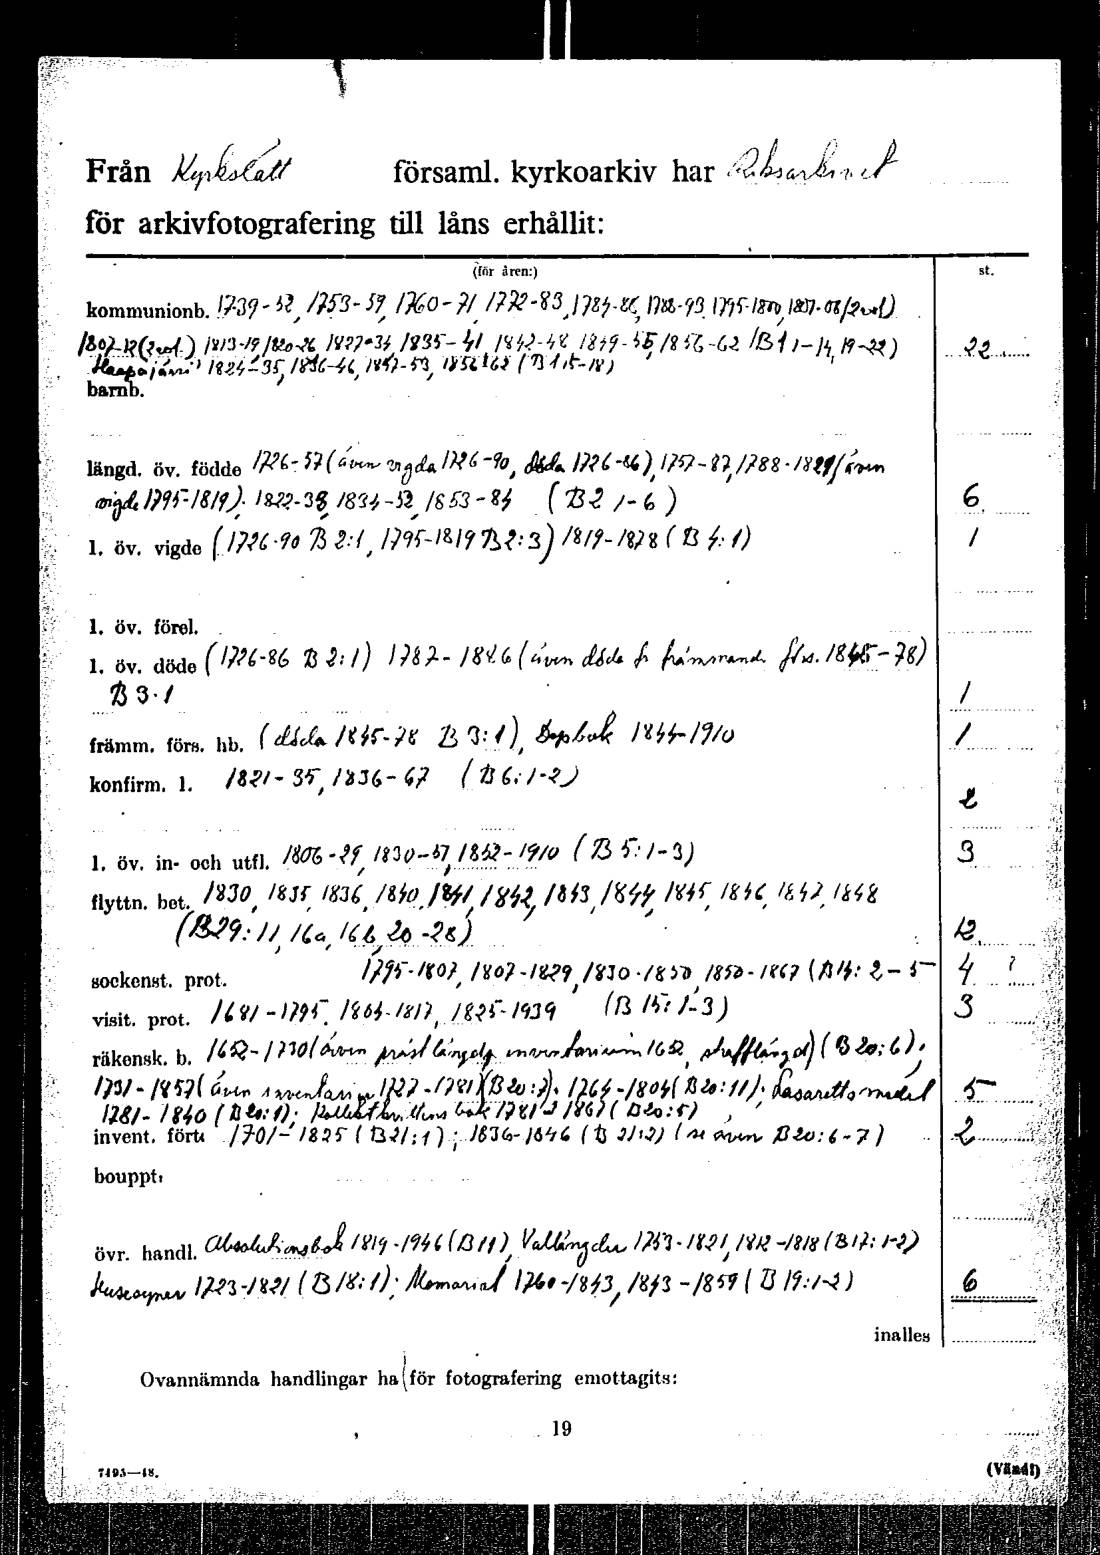 Från Kyrkslätt församl. kyrkoarkiv har Riksarkivet
för arkivfotografering till låns erhållit:
(för åren:) st.
kommunionb. 1739-52, 1753-59, 1760-71, 1772-83, 1784-86, 1788-93, 1795-1800, 1807-08 (2 vol)
1807-12 (2 vol.) 1813-19, 1820-26 1827-34, 1835-41 1842-48 1849-55, 1856-62 (B1 1-14, 19-22) 22
Haapajärvi 1824-35, 1836-46, 1847-53, 1856-62 (B 1 15-18)
barnb.
längd. öv. födde 1726-57 (även vigda 1726-90, döda 1726-86), 1757-87, 1788-1821 (även
vigde 1795-1819). 1822-33, 1834-52, 1853-84 (B2 1-6) 6
l. öv. vigde (1726-90 B 2:1, 1795-1819 B 2:3) 1819-1878 (B 4:1) 1
l. öv. förel.
l. öv. döde (1726-86 B 2:1) 1787-1846 (även döde fr främmande förs. 1845-78)
B 3:1 1
främm. förs. hb. (döda 1845-78 B 3:1), Dopbok 1844-1910 1
konfirm. l. 1821-35, 1836-67 (B 6:1-2)
2
l. öv. in- och utfl. 1806-29, 1830-51, 1852-1910 (B 5:1-3) 3
flyttn. bet. 1830, 1835, 1836, 1840, 1841, 1842, 1843, 1844, 1845, 1846, 1847, 1848
(B29:11, 16a, 16b, 20-28) 12
sockenst. prot. 1795-1807, 1807-1829, 1830-1850, 1850-1867 (B14: 2-5 4 ?
visit. prot. 1681-1795, 1804-1817, 1825-1939 (B 15:1-3) 3
räkensk. b. 1652-1730 (även prästlängd, inventarium 1652, strafflängd) (B 20:6);
1731-1857 (även inventarium 1727-1781) (B 20:7); 1764-1804 (B20:11); Lasarettsmedel 5
1781-1840 (B 20:1); Kollektkvittens bok 1781-1867 (B20:5)
invent. fört. 1701-1825 (B21:1); 1836-1846 (B 21:2) (se även B20:6-7) 2
bouppt.
övr. handl. Absolutionsbok 1819-1946 (B11), Vallängder 1753-1821, 1812-1818 (B17:1-2)
Husesyner 1723-1821 (B 18:1); Memorial 1760-1843, 1843-1859 (B 19:1-2) 6
inalles
Ovannämnda handlingar ha för fotografering emottagits:
19
7495—48. (Vänd!)